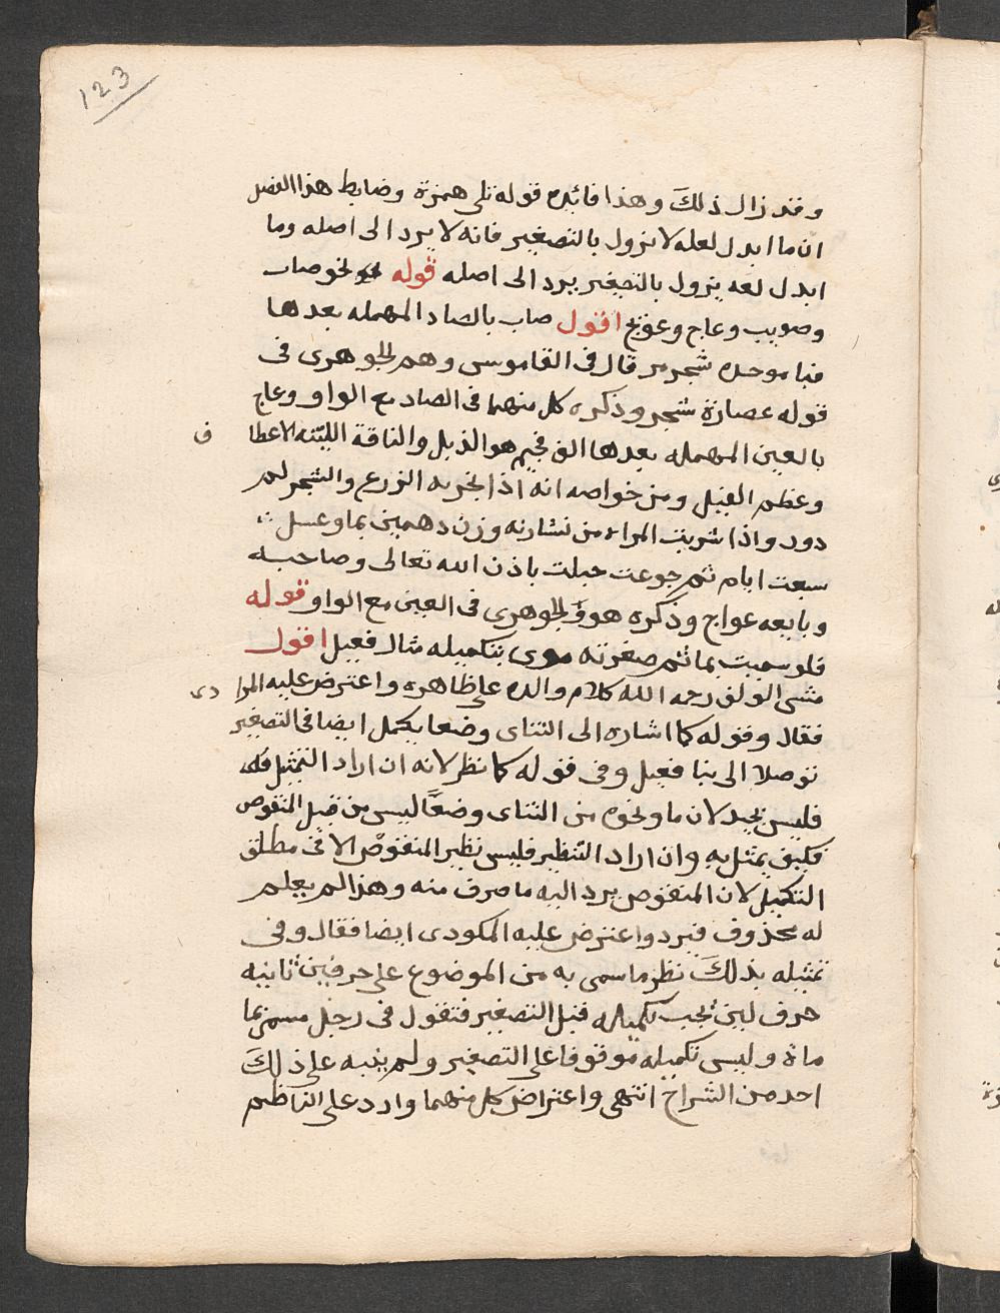 123
وقد زال ذلكَ وهذا فائده قوله تلى همزة وضابط هذا الفصل
ان ما ابدل لعله لا يزول بالتصغير فانه لا يرد الى اصله وما
ابدل لعه يزول بالتصغير يرد الى اصله قوله نحو صاب
وصويب وعاج وعويج اقول صاب بالصاد المهمله بعدها
فبا موحده شجر مر قال فى القاموس وهم للجوهرى فى
قوله عصارة شجر وذكره كل منهما فى الصاد مع الواو وعاج
بالعين المهمله بعدها الف فجيم هو الذبل والناقة اللينه الاعطا ف
وعظم الفيل ومن خواصه انه اذا بخر به الزرع والشجر لم
دود واذا شربت المراه من نشارته وزن دهمين بما وعسل
سبعت ايام ثم جوعت حبلت باذن الله تعالى وصاحبه
وبايعه عواج وذكره هو و الجوهرى فى العين مع الواو قوله
فلو سميت بما ثم صغرته موى بتكميله مثال فعيل اقول
مشى المولف رحمه الله كلام والده على ظاهره واعترض عليه المرا دى
فقال وقوله كما اشاره الى الثناى وضعا يكمل ايضا فى التصغير
توصلا الى بنا فعيل وفى قوله كما نظر لانه ان اراد التمثيل
فليس بجيد لان ما ونحوه من الثناى وضعًا ليس من قبيل المنقوص
فكيف يمثل به وان اراد التنظير فليس نظير المنقوص الا فى مطلق
التكميل لان المنقوص يرد اليه ما صرف منه وهذا لم يعلم
له محذوف فيرد واعترض عليه المكودى ايضا فقال وفى
تمثيله بذلكَ نظر ما سمى به من الموضوع على حرفين ثانيه
حرف لين يجب تكميله قبل التصغير فتقول فى رجل مسمى بما
ماء وليس تكميله موقوفا على التصغير ولم ينبه على ذلكَ
احد من الشراح انتهى واعتراض كل منهما وارد على الناظم